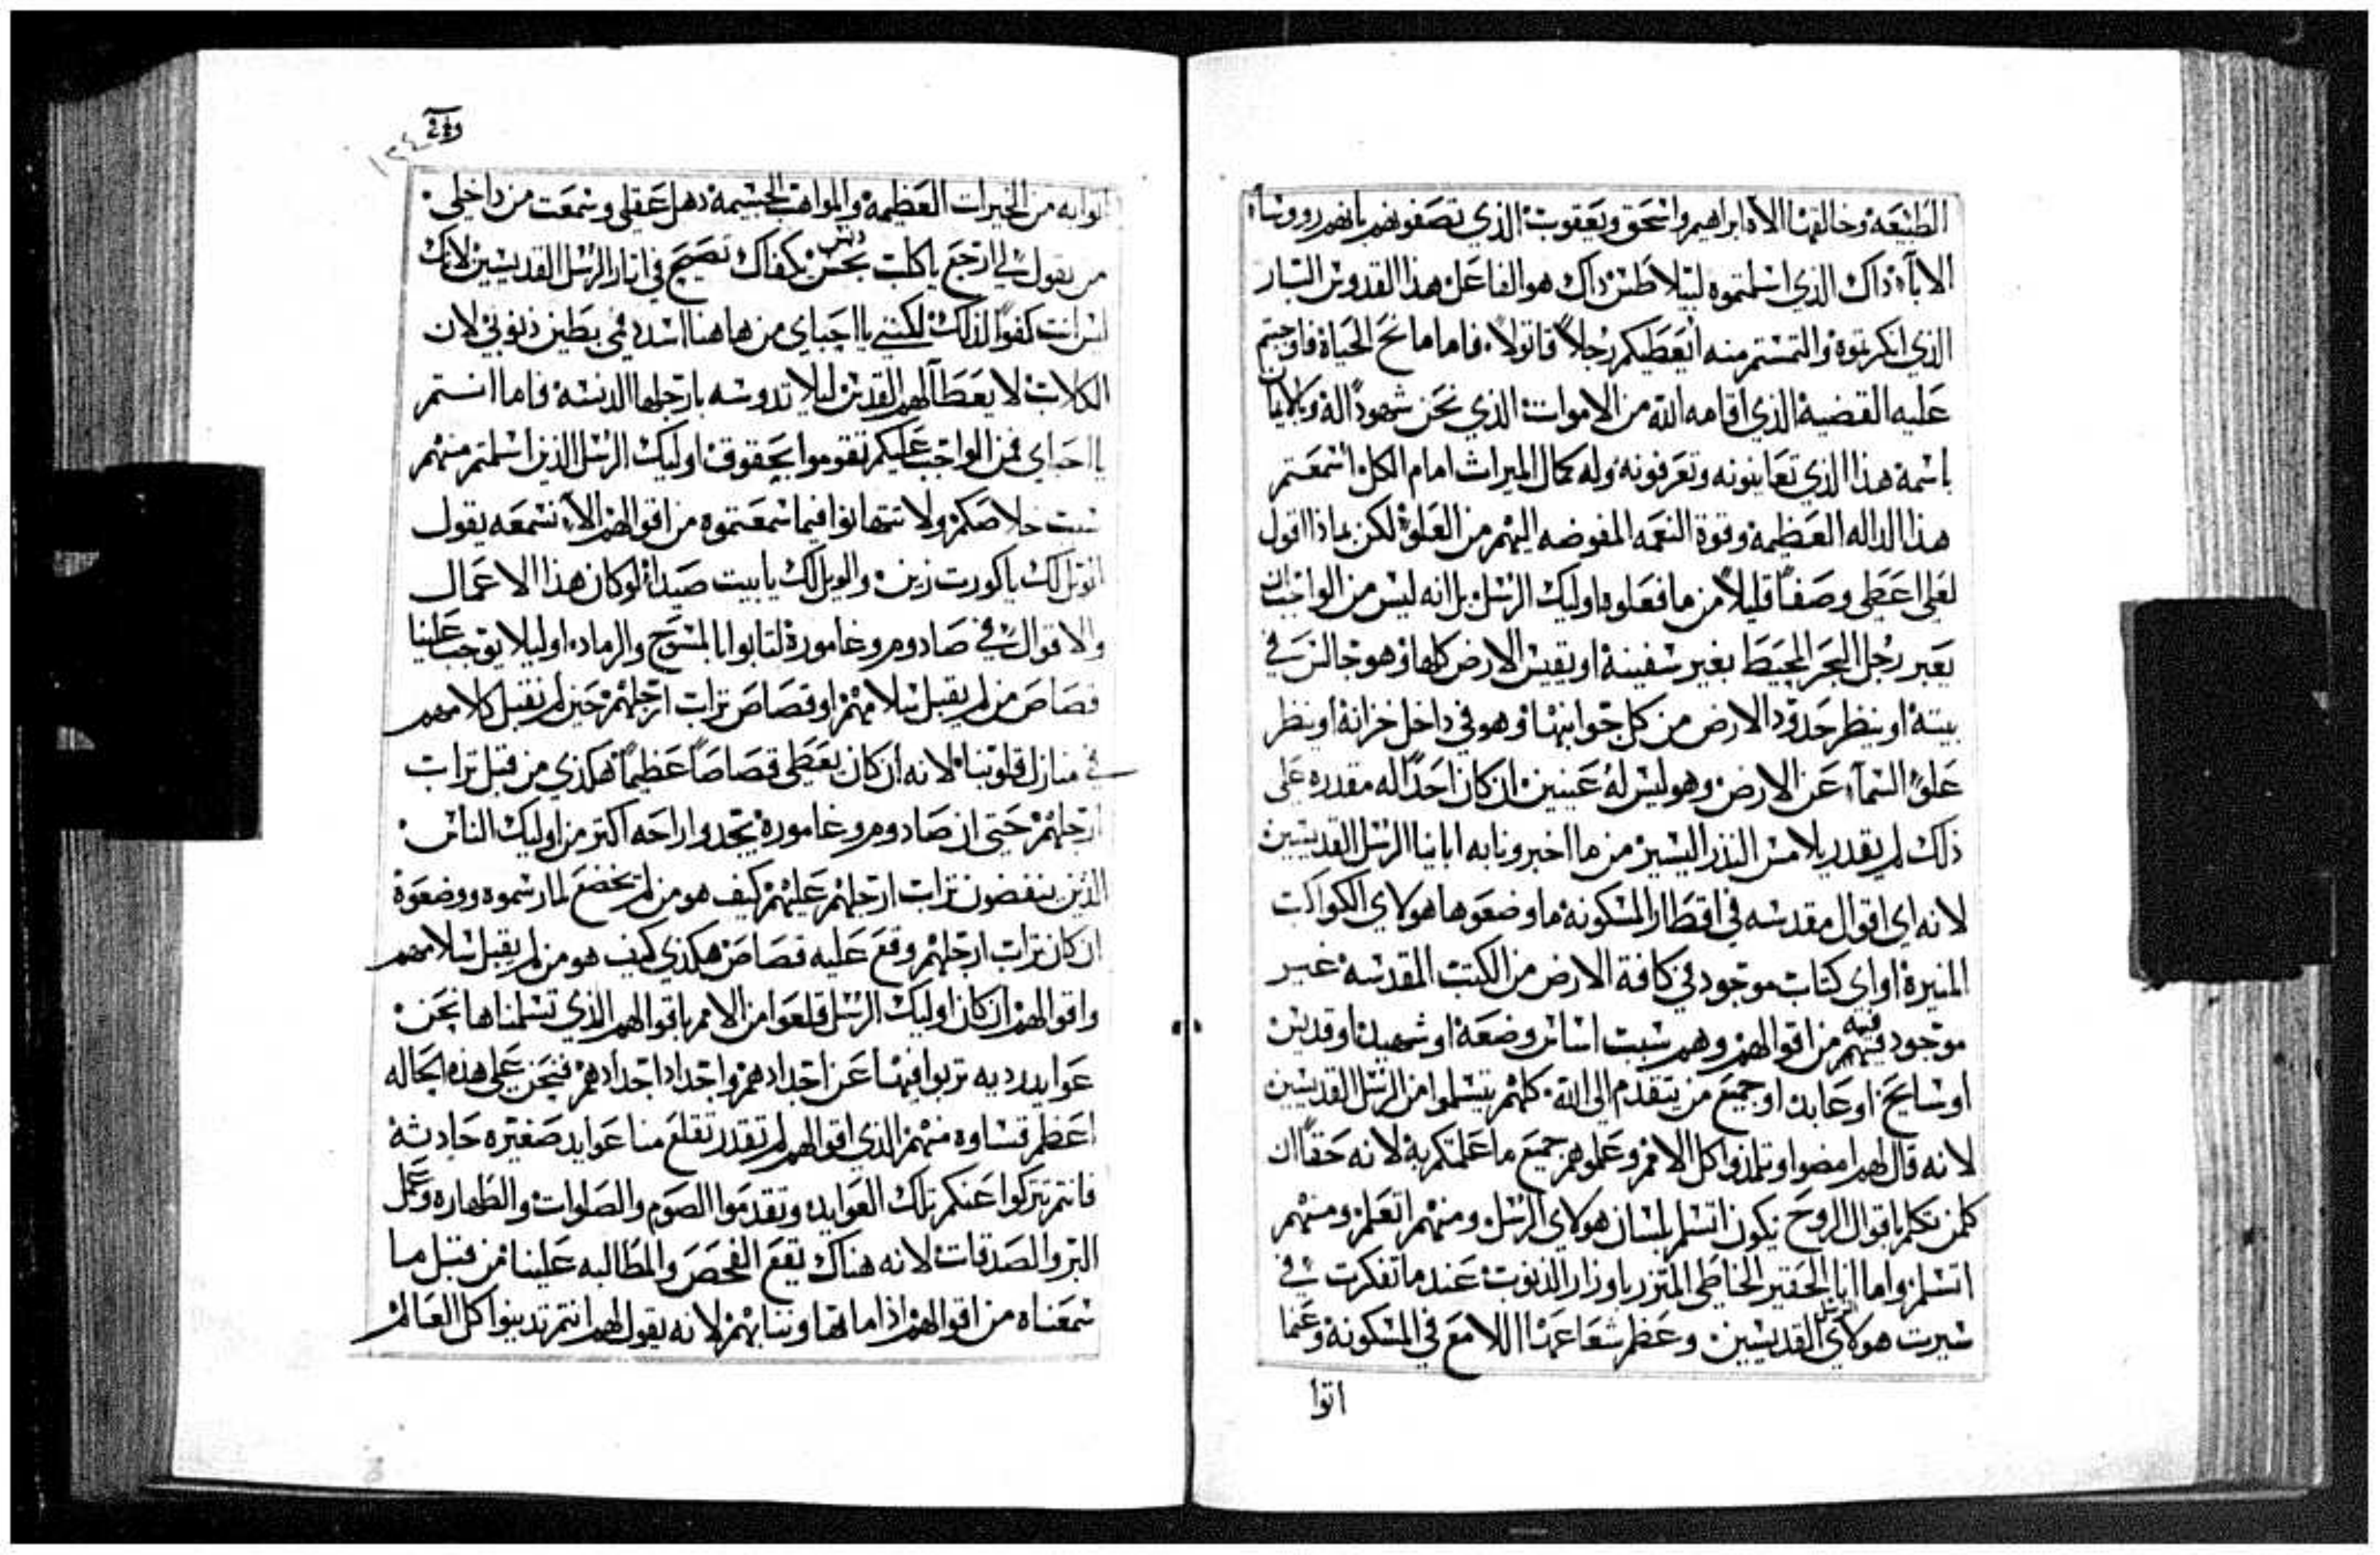 الطبيعة وخالقها الاه ابراهيم واسحق ويعقوب الذي تصفونهم بانهم رووسا
الاباء ذاك الذي اسلمتموه لبيلاطس ذاك هو الفاعل هذا القدوس البار
الذي انكرتموه والتمستم منه ايعطيكم رجلاً قاتولاً، فاما مانح الحياة فاوجبتم
عليه القضية الذي اقامه الله من الاموات الذي نحن شهوداً له وبالايمان
باسمه هذا الذي تعاينونه وتعرفونه وله كمال الميراث امام الكل اسمعتم
هذا الداله العظيمه وقوة النعمه المفوضه اليهم من العلو لكن بماذا اقول
لعلي اعطي وصفاً قليلاً من ما فعلوه اوليك الرسل بل انه ليس من الواجب ان
يعبر رجل البحر المحيط بغير سفينة او يقيس الارض كلها وهو جالس في
بيته او ينظر حدود الارض من كل جوانبها وهو في داخل خزانة او ينظر
علو السماء عن الارض وهو ليس له عينين ان كان احداً له مقدره على
ذلك لم يقدر يلامس النذر اليسير من ما اخبرونا به اباينا الرسل القديسين
لانه اي اقوال مقدسه في اقطار المسكونة ما وضعوها هولاي الكواكب
المنيرة او اي كتاب موجود في كافة الارض من الكتب المقدسة غير
موجود فيه فيهم من اقوالهم وهم سبب اساس وضعة او شهيد او قديس
او سايح او عابد او جميع من يتقدم الى الله كلهم يتسلموا من الرسل القديسين
لانه قال لهم امضوا وتلمذوا كل الامم وعلموهم جميع ما علمتكم به لانه حقاً ان
كلمن تكلم باقوال الروح يكون اتسلم بلسان هولاي الرسل ومنهم اتعلم ومنهم
اتسلم واما انا الحقير الخاطي المتزر باوزار الذنوب عندما تفكرت في
سيرت هولاي الرسل القديسين وعظم شعاعها اللامع في المسكونة وعنما
اتوا
اتوا به من الخيرات العظيمه والمواهب الجسيمة ذهل عقلي وسمعت من داخلي
من يقول لي ارجع يا كلب نجس دنس يكفاك تصيح في اثار الرسل القديسين لانك
ليس انت كفواً لذلك لكنني يا احباي من هاهنا اسدد فمي بطين ذنوبي لان
الكلاب لا يعطا لهم القدس ليلا تدوسه بارجلها الدنسه فاما انتم
يا احباي فمن الواجب عليكم تقوموا بحقوق اوليك الرسل الذين اسلمتم منهم
سبب خلاصكم ولا تتهانوا فيما سمعتموه من اقوالهم الان نسمعه يقول
الويل لك يا كورت زين والويل لك يا بيت صيدا لو كان هذا الاعمال
والاقوال في صادوم وغامورة لتابوا بالمسوح والرماد اوليلا يوجب علينا
قصاص من لم يقبل سلامهم او قصاص تراب ارجلهم حين لم نقبل كلامهم
في منازل قلوبنا لانه ان كان يعطي قصاصاً عظيماً هكذي من قبل تراب
ارجلهم حتى ان صادوم وغامورة يجدوا راحه اكتر من اوليك الناس
الذين ينفضون تراب ارجلهم عليهم كيف هو من لم يخضع لما رسموه ووضعوة
ان كان تراب ارجلهم وقع عليه قصاص هكذي كيف هو من لم يقبل سلامهم
واقوالهم ان كان اوليك الرسل قلعوا من الامم باقوالهم الذي تسلمناها نحن
عوايد رديه تربوا فيها عن اجدادهم واجداد اجدادهم فنحن على هذه الحاله
اعظم قساوه منهم الذي اقوالهم لم تقدر تقلع منا عوايد صغيره حادثة
فانتم تتركوا عنكم تلك العوايد وتقدموا الصوم والصلوات والطهاره وعمل
البر والصدقات لانه هناك يقع الفحص والمطالبه علينا من قبل ما
سمعناه من اقوالهم اذا ما تهاوننا بهم لانه يقول لهم انتم تدينوا كل العالم